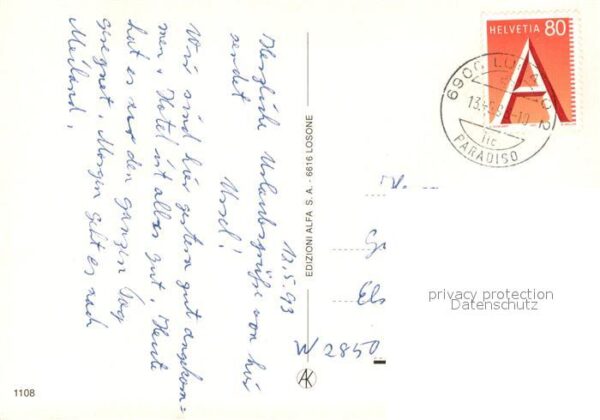 13.5.93
Herzliche Urlaubsgrüße von hier
sendet
Ursel!
Wir sind hier gestern gut angekom=
men, Hotel ist alles gut. Heute
hat es den ganzen Tag
geregnet. Morgen geht es nach
Meiland.
EDIZIONI ALFA S.A. - 6616 LOSONE
HELVETIA 80
A
6900 LUGANO 2
PARADISO
W 2850
Els
privacy protection
Datenschutz
AK
1108